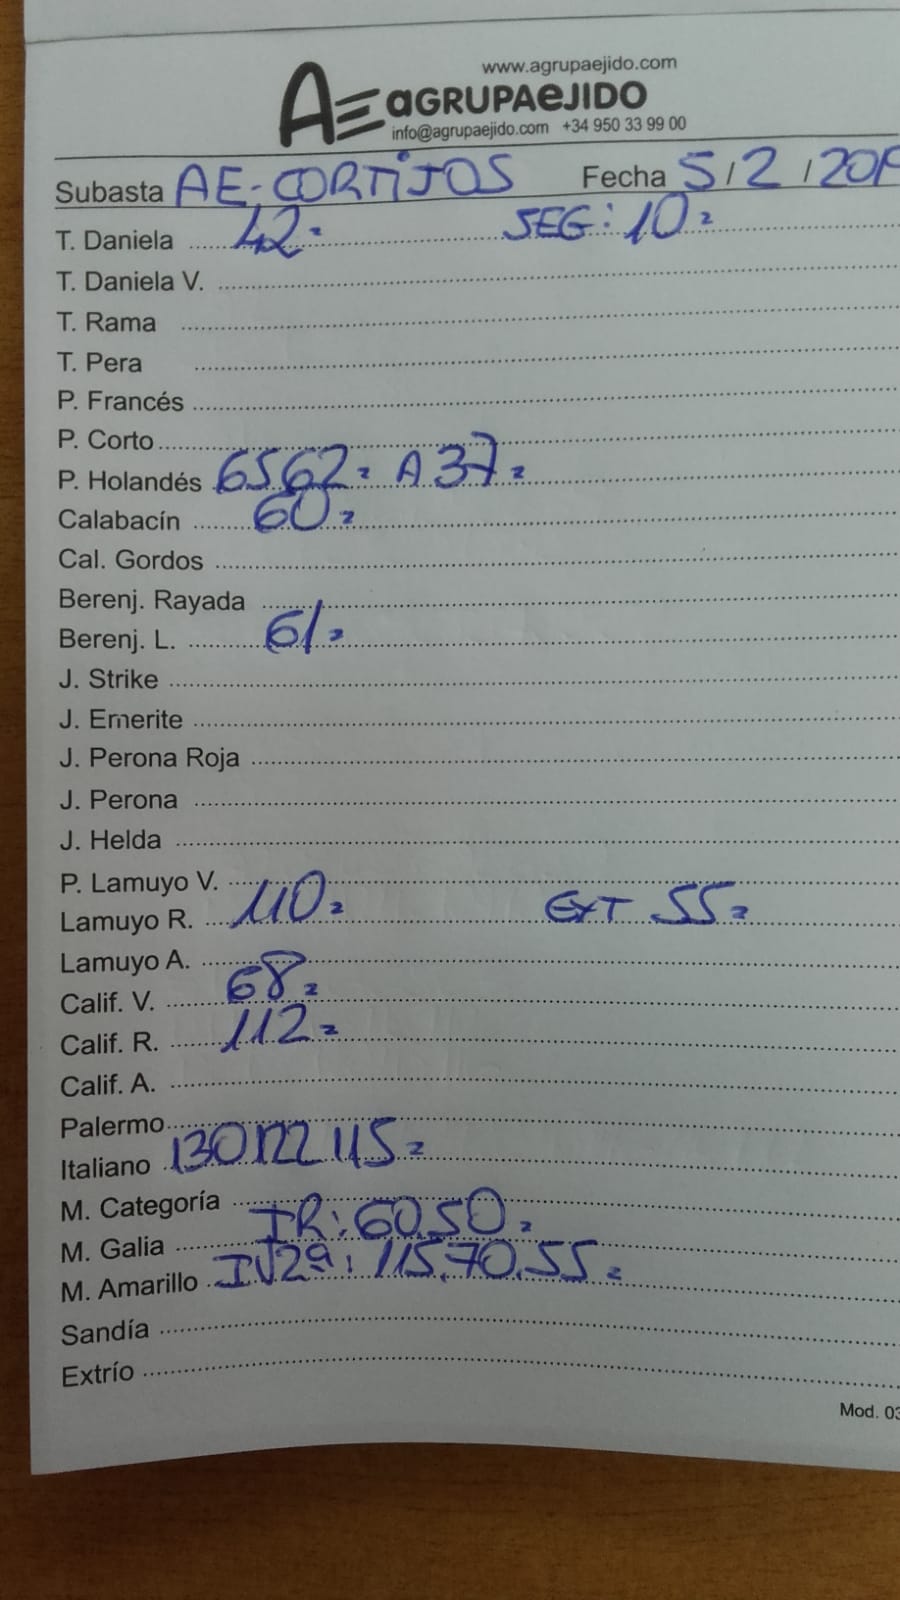 www.agrupaejido.com
AE aGRUPAeJIDO
info@agrupaejido.com +34 950 33 99 00
Subasta AE-CORTIJOS Fecha 5/2/2019
T. Daniela 42= SEG: 10=
T. Daniela V.
T. Rama
T. Pera
P. Francés
P. Corto
P. Holandés 65 62= A 37=
Calabacín 60=
Cal. Gordos
Berenj. Rayada
Berenj. L. 61=
J. Strike
J. Emerite
J. Perona Roja
J. Perona
J. Helda
P. Lamuyo V.
Lamuyo R. 110= EXT 55=
Lamuyo A.
Calif. V. 68=
Calif. R. 112=
Calif. A.
Palermo
Italiano 130 122 115=
M. Categoría
M. Galia IR: 60.50=
M. Amarillo IV2ª: 115.70.55=
Sandía
Extrío
Mod. 03